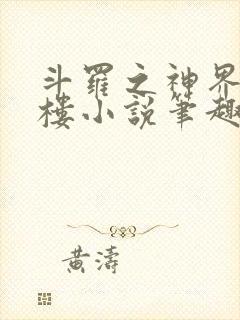 斗羅之神界
樓小說筆趣
黃濤